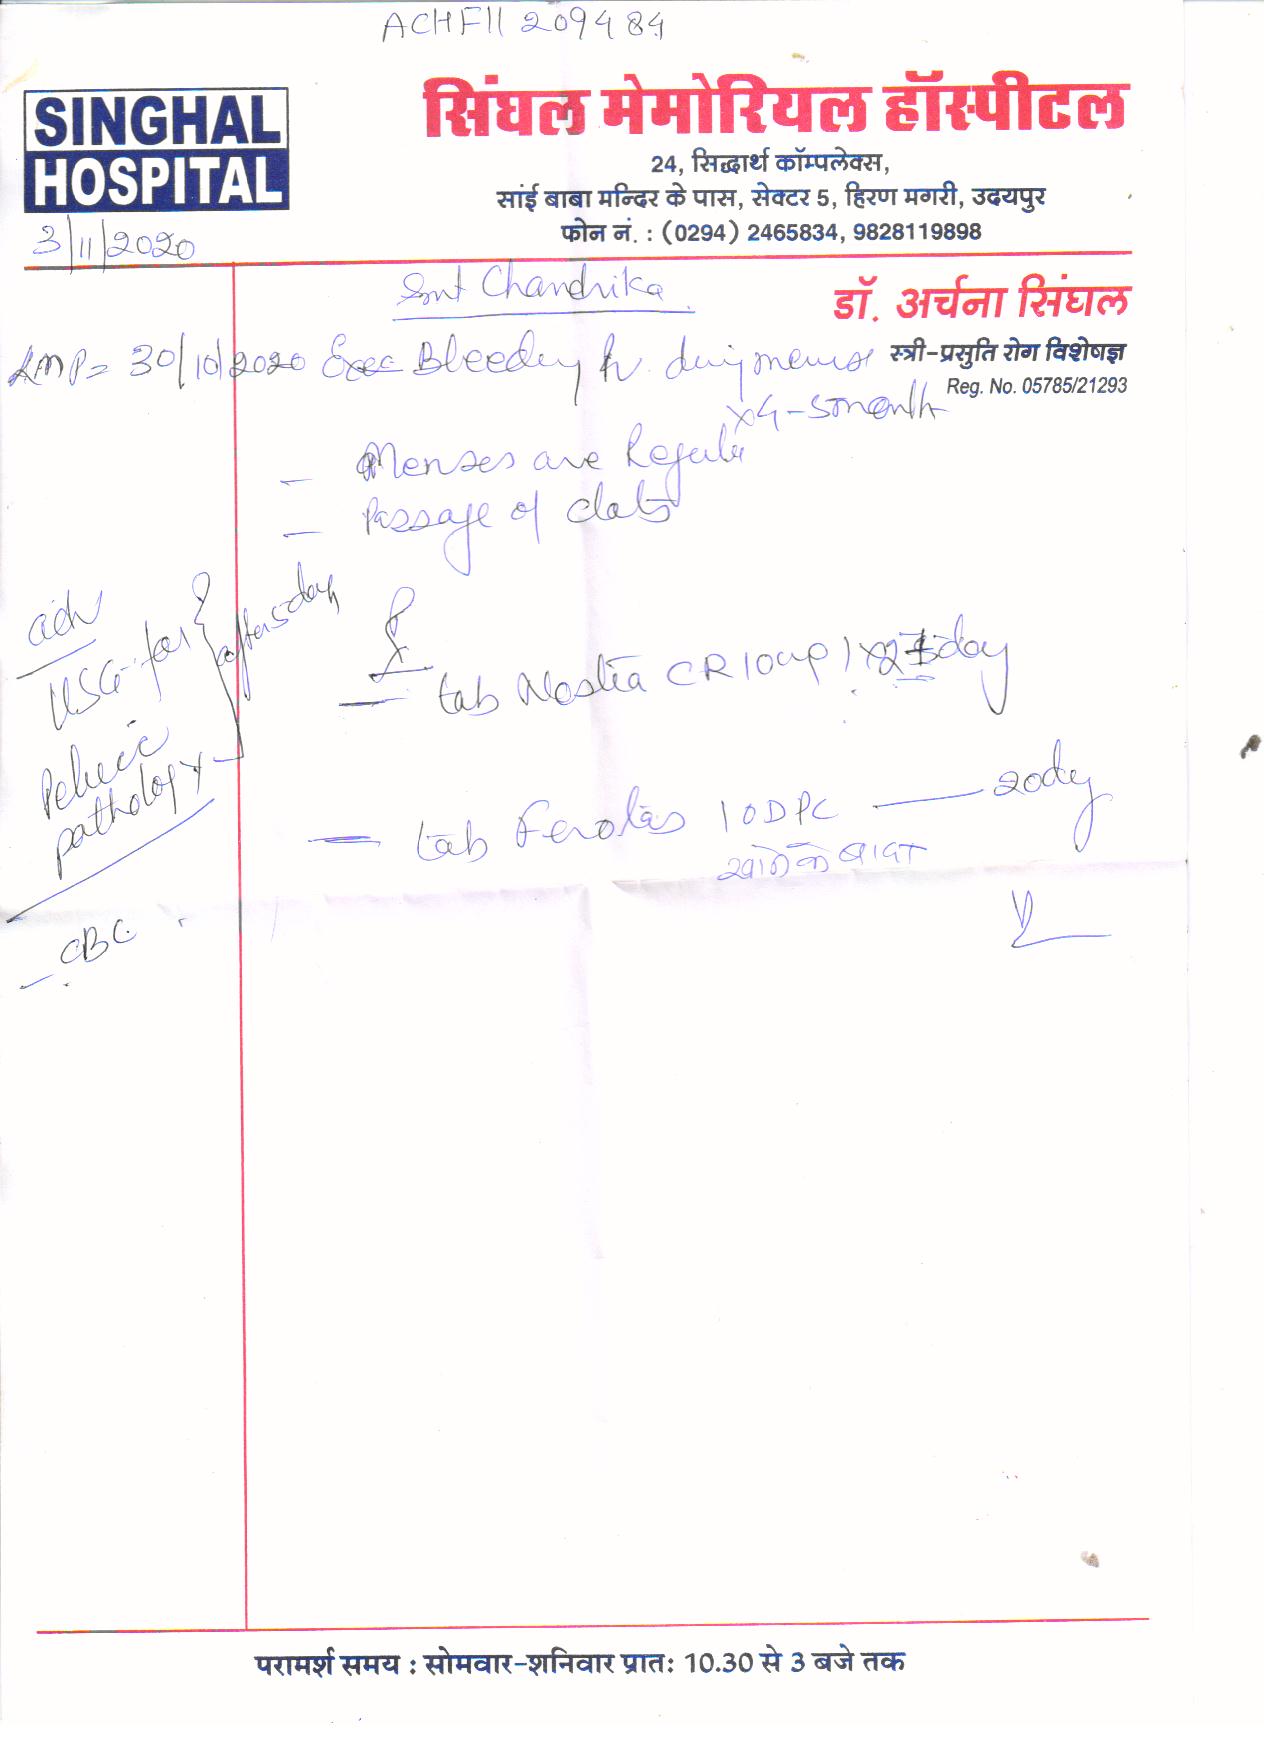 ACHF11 209484
SINGHAL
HOSPITAL
सिंघल मेमोरियल हॉस्पीटल
24, सिद्धार्थ कॉम्पलेक्स,
सांई बाबा मन्दिर के पास, सेक्टर 5, हिरण मगरी, उदयपुर
फोन नं. : (0294) 2465834, 9828119898
3/11/2020
Smt Chandrika
डॉ. अर्चना सिंघल
स्त्री-प्रसुति रोग विशेषज्ञ
Reg. No. 05785/21293
LMP = 30/10/2020 Bleeding during menses
x 4-5 month
- Menses are Regular
- Passage of clots
adv
USG for
Pelvic
pathology
after 5 day
- CBC
- tab CR 10mg 1 x day
- tab 1 OD PC — 20 day
खाने के बाद
परामर्श समय : सोमवार-शनिवार प्रातः 10.30 से 3 बजे तक